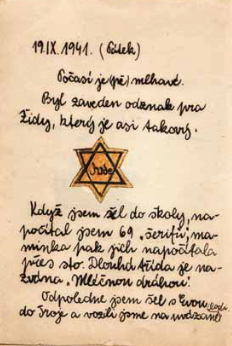 19.IX. 1941. (Pátek)
Počasí je (pě) mlhavé.
Byl zaveden odznak pro
Židy, který je asi takový.
Jude
Když jsem šel do školy, na-
počítal jsem 69 „šerifů", ma-
minka pak jich napočítala
přes sto. Dlouhá třída je na-
zvána „Mléčnou dráhou".
Odpoledne jsem šel s Evou
do Troje a vozili jsme na